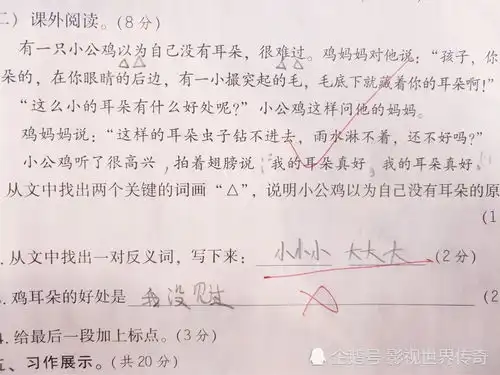 二）课外阅读。（8分）
有一只小公鸡以为自己没有耳朵，很难过。鸡妈妈对他说：“孩子，你
朵的，在你眼睛的后边，有一小撮突起的毛，毛底下就藏着你的耳朵啊！”
“这么小的耳朵有什么好处呢？”小公鸡这样问他的妈妈。
鸡妈妈说：“这样的耳朵虫子钻不进去，雨水淋不着，还不好吗？”
小公鸡听了很高兴，拍着翅膀说：“我的耳朵真好，我的耳朵真好。
从文中找出两个关键的词画“△”，说明小公鸡以为自己没有耳朵的原
（1
.从文中找出一对反义词，写下来：小小小 大大大（2分）
.鸡耳朵的好处是 我没见过（2
4.给最后一段加上标点。（3分）
五、习作展示。（共20分）
企鹅号 影视世界传奇